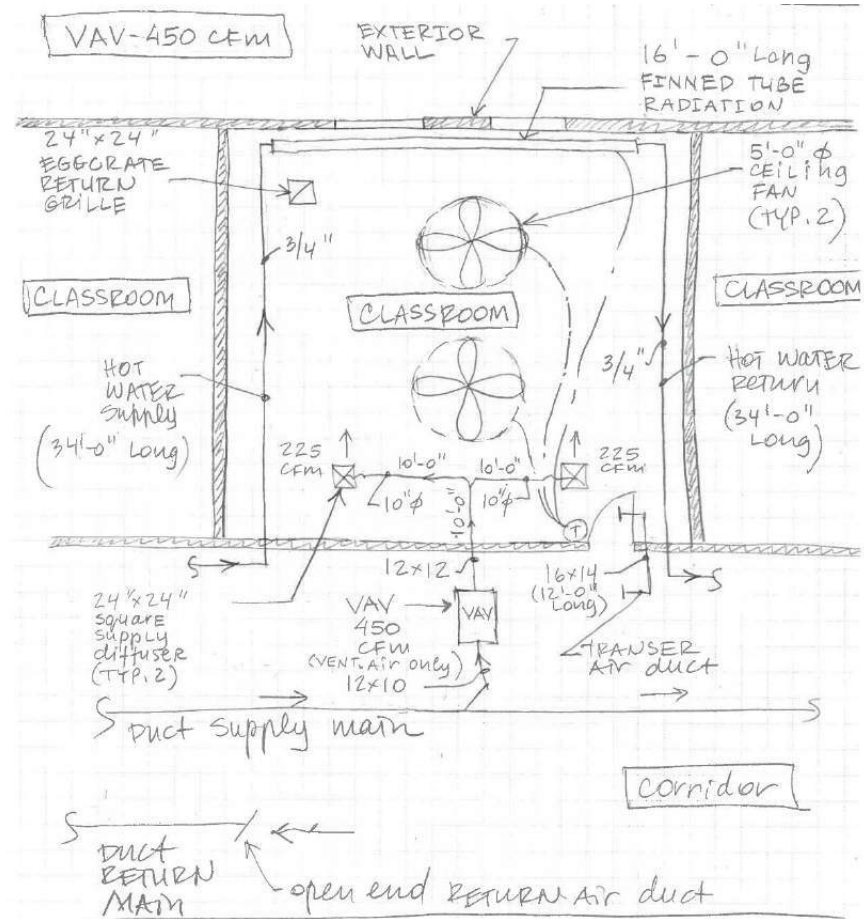 VAV-450 CFM
EXTERIOR
WALL
16'-0" Long
FINNED TUBE
RADIATION
24"x24"
EGGCRATE
RETURN
GRILLE
5'-0" φ
CEILING
FAN
(TYP. 2)
3/4"
CLASSROOM
CLASSROOM
CLASSROOM
3/4"
HOT
WATER
Supply
(34'-0" Long)
HOT WATER
Return
(34'-0"
Long)
225
CFM
10'-0"
10'-0"
225
CFM
10"φ
10"φ
10'-0"
T
12x12
16x14
(12'-0"
Long)
24"x24"
square
supply
diffuser
(TYP. 2)
VAV
450
CFM
(VENT. Air only)
12x10
VAV
TRANSER
Air duct
Duct Supply main
corridor
DUCT
RETURN
MAIN
open end RETURN Air duct